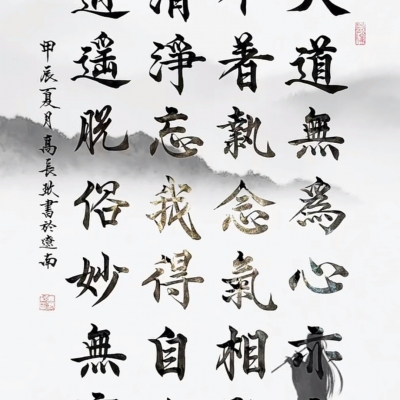 道無為心亦
著執念氣相
清淨忘我得自
逍遙脫俗妙無
甲辰夏月高長書於遼南